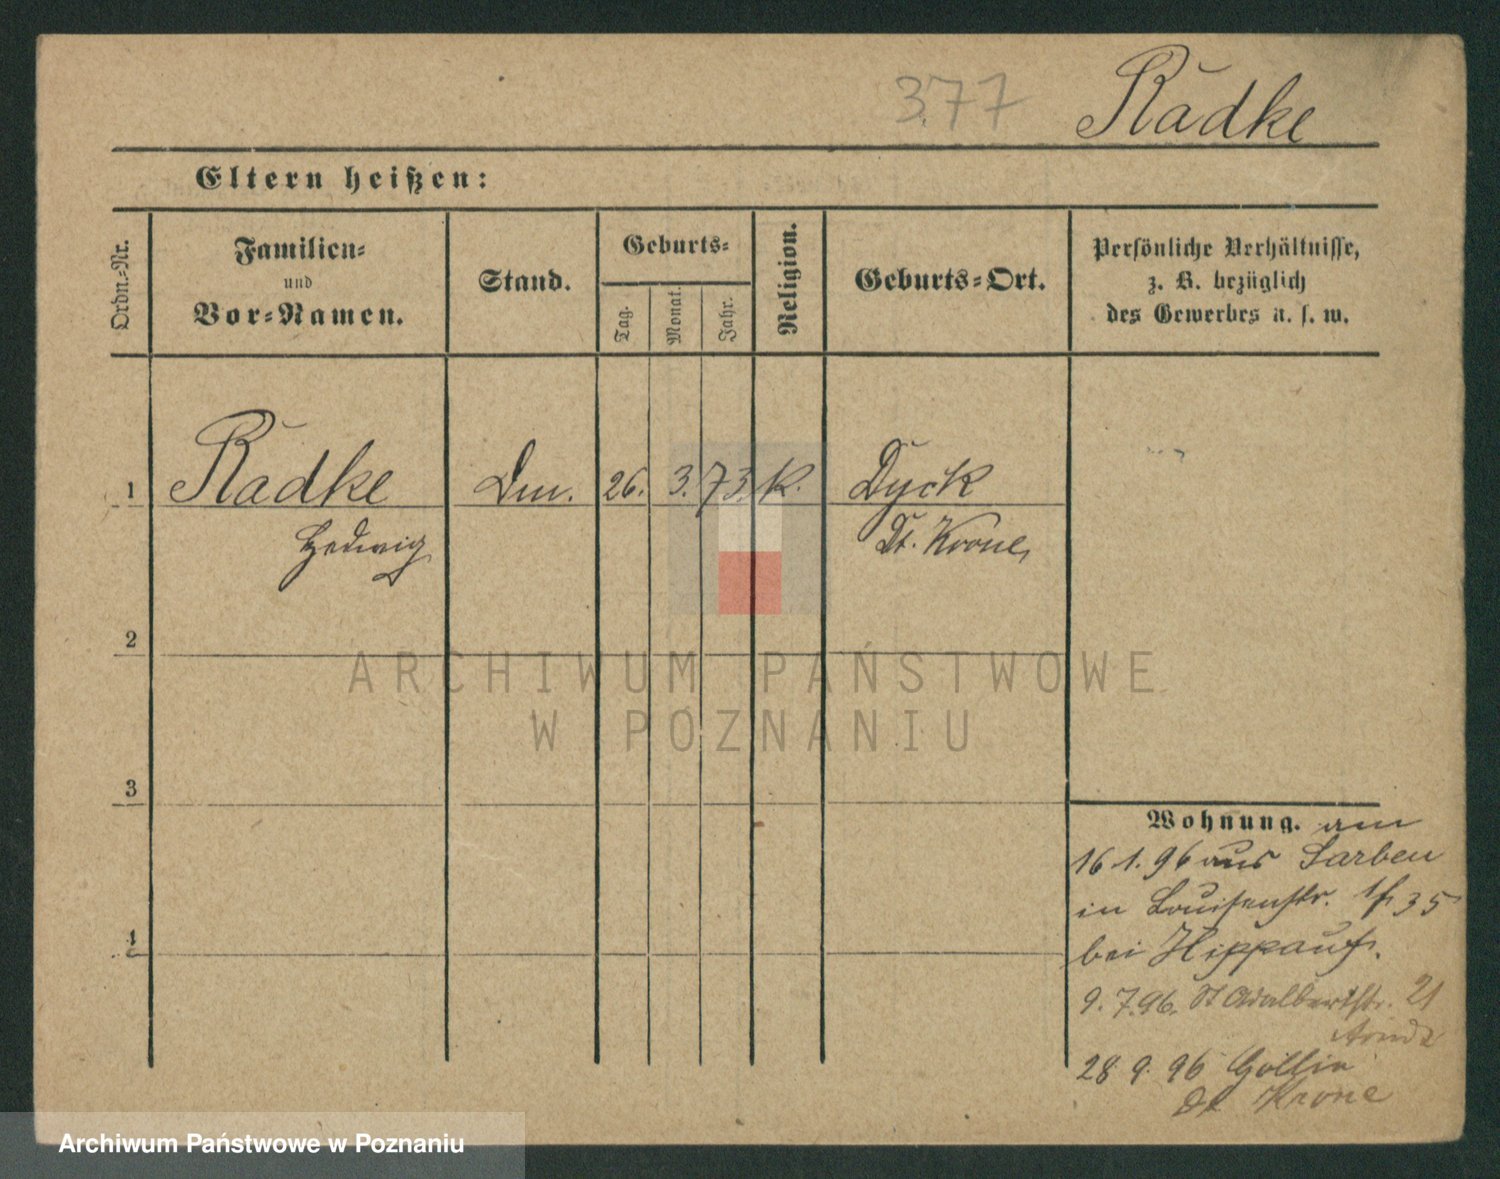 377 Radke
Eltern heißen:
Ordn.-Nr.
Familien-
und
Vor-Namen.
Stand.
Geburts-
Tag.
Monat.
Jahr.
Religion.
Geburts-Ort.
Persönliche Verhältnisse,
z. B. bezüglich
des Gewerbes u. s. w.
1 Radke Dm. 26. 3. 73. k. Dyck
Hedwig Dt. Krone
2
3
4
Wohnung. am
16 1. 96 aus Sarben
in Louisenstr. 35
bei Hippauf.
9. 7. 96. St Adalbertstr. 21
Arndt
28 9. 96 Gollin
Dt Krone
ARCHIWUM PAŃSTWOWE
W POZNANIU
Archiwum Państwowe w Poznaniu